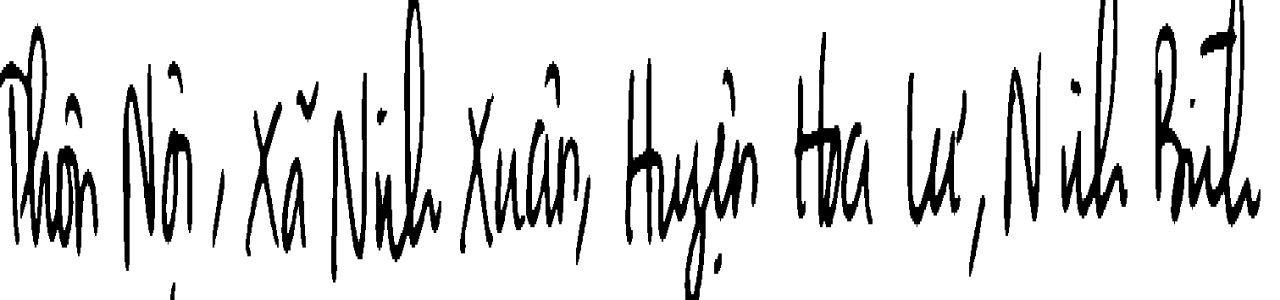 Thôn Nội, Xã Ninh Xuân, Huyện Hoa Lư, Ninh Bình